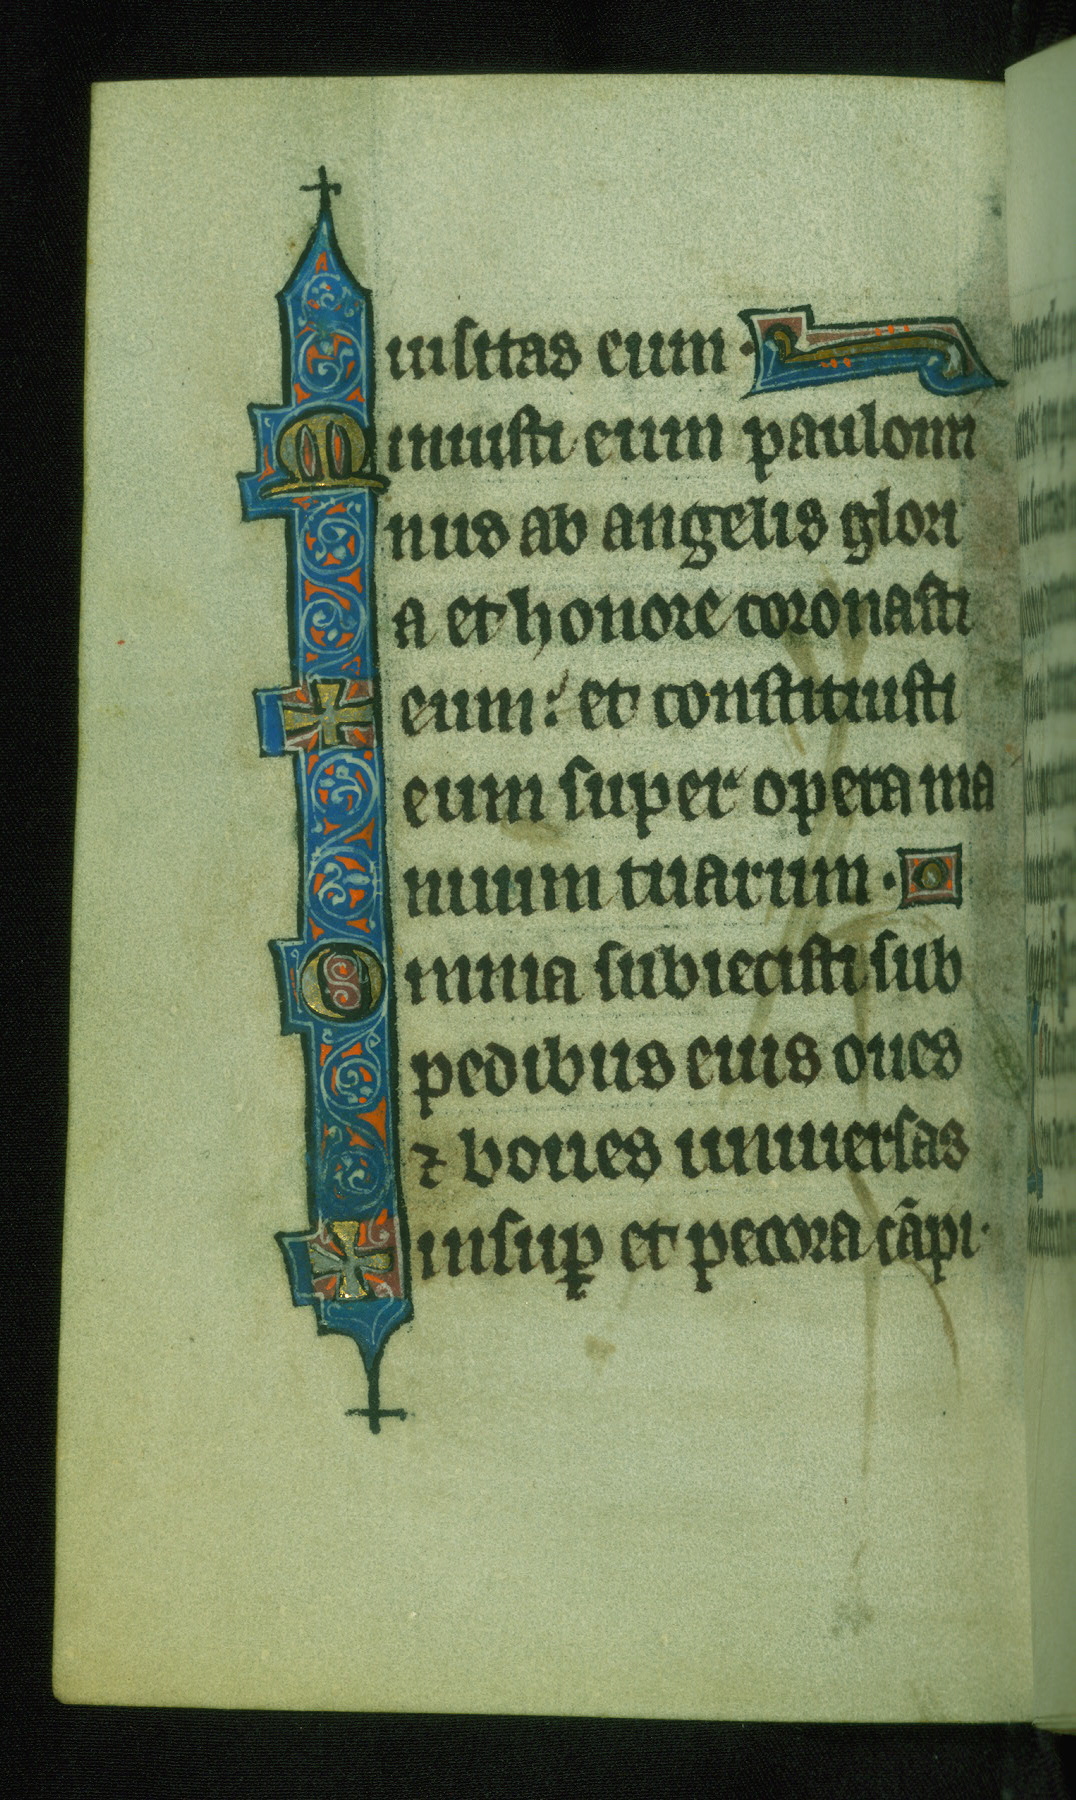 uisitas eum ·
Minuisti eum paulomi
nus ab angelis glori
a et honore coronasti
eum: et constituisti
eum super opera ma
nuum tuarum ·
Omnia subiecisti sub
pedibus eius oues
⁊ boues uniuersas
insuꝑ et pecora cāpi ·